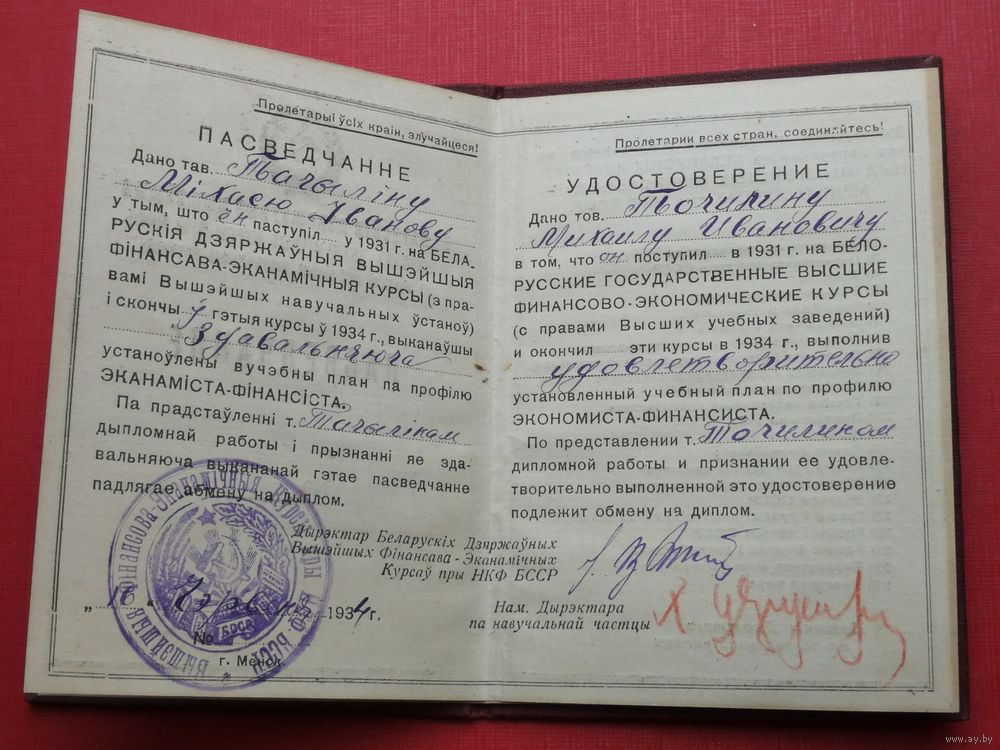 Пролетарыі ўсіх краін, злучайцеся!
ПАСВЕДЧАННЕ
Дано тав. Тачыліну
Міхасю Іванову
у тым, што ён паступіл у 1931 г. на БЕЛА-
РУСКІЯ ДЗЯРЖАЎНЫЯ ВЫШЭЙШЫЯ
ФІНАНСАВА-ЭКАНАМІЧНЫЯ КУРСЫ (з пра-
вамі Вышэйшых навучальных ўстаноў)
і скончыў гэтыя курсы ў 1934 г., выканаўшы
здавальняюча
устаноўлены вучэбны план па профілю
ЭКАНАМІСТА-ФІНАНСІСТА.
Па прадстаўленні т. Тачылінам
дыпломнай работы і прызнанні яе зда-
вальняюча выкананай гэтае пасведчанне
падлягае абмену на дыплом.
Дырэктар Беларускіх Дзяржаўных
Вышэйшых Фінансава-Эканамічных
Курсаў пры НКФ БССР
„16“ Чэрвеня 1934 г.
No
г. Менск
Вышэйшыя Фінансова Эканамічныя Курсы
БССР
Пролетарии всех стран, соединяйтесь!
УДОСТОВЕРЕНИЕ
Дано тов. Точилину
Михаилу Ивановичу
в том, что он поступил в 1931 г. на БЕЛО-
РУССКИЕ ГОСУДАРСТВЕННЫЕ ВЫСШИЕ
ФИНАНСОВО-ЭКОНОМИЧЕСКИЕ КУРСЫ
(с правами Высших учебных заведений)
и окончил эти курсы в 1934 г., выполнив
удовлетворительно
установленный учебный план по профилю
ЭКОНОМИСТА-ФИНАНСИСТА.
По представлении т. Точилином
дипломной работы и признании ее удовле-
творительно выполненной это удостоверение
подлежит обмену на диплом.
Нам. Дырэктара
па навучальнай частцы
www.ay.by